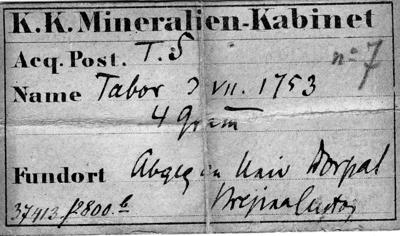 K.K. Mineralien-Kabinet
Acq. Post. T. S
n° 7
Name Tabor 3 VII. 1753
4 Gram
Fundort Abgeg an Univ Dorpat
37413 f 2800. b
Brezina Custos